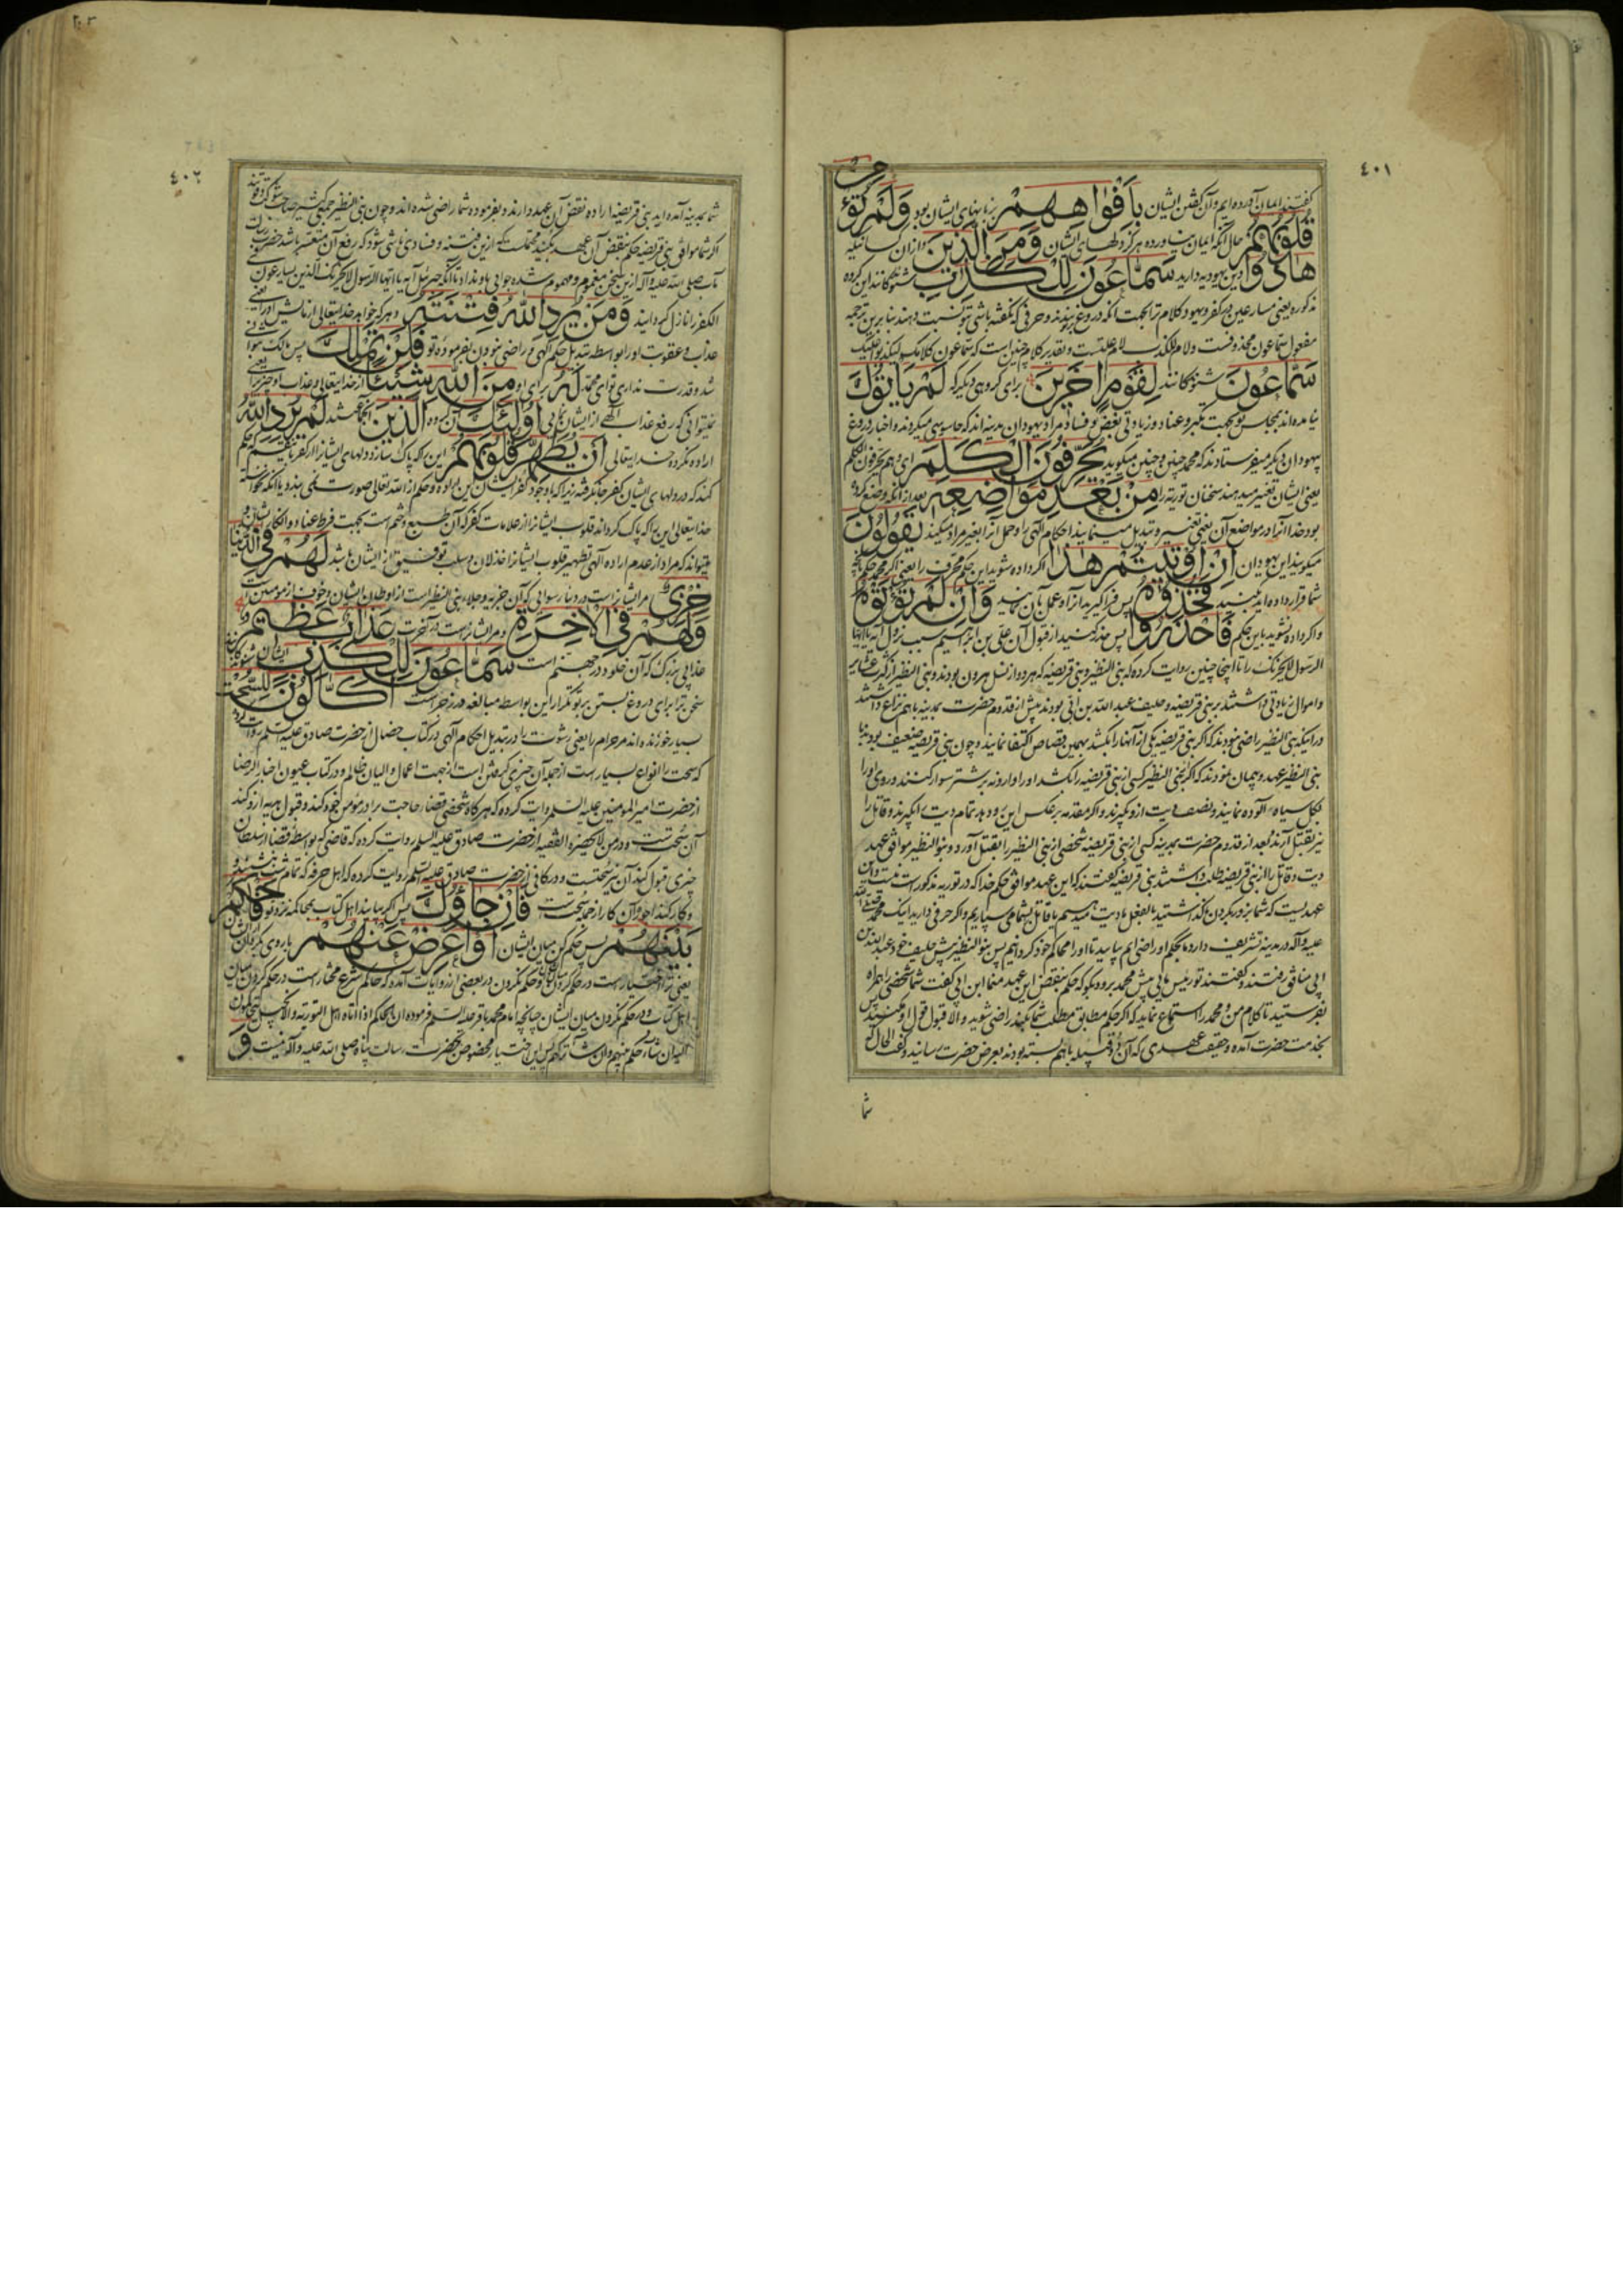 ٤٠١
گفتند ایمان آورده ایم و آن گفتن ایشان بِأَفْوَاهِهِمْ بزبانهای ایشان بود وَلَمْ تُؤْمِنْ
قُلُوبُهُمْ حال آنکه ایمان نیاورده هرگز دلهای ایشان وَمِنَ الَّذِينَ و از آن کسانیکه
هَادُوا دین یهودیه دارید سَمَّاعُونَ لِلْكَذِبِ شنوندگانند این گروه
مذکوره یعنی مسارعین در کفر و یهود کلام ترا بجهت آنکه دروغ بندند و حرفی که نگفته باشی بتو نسبت دهند بنا برین ترجمه
مفعول سماعون محذوفست و لام للکذب لام علتست و تقدیر کلام چنین است که سماعون کلامک لیکذبوا علیک
سَمَّاعُونَ شنوندگانند لِقَوْمٍ آخَرِينَ برای گروهی دیگر که لَمْ يَأْتُوكَ
نیامده اند بمجلس تو بجهت تکبر و عناد و زیادتی بغض و فساد مراد یهودان مدینه اند که جاسوسی میکردند و اخبار دروغ
یهودان دیگر میفرستادند که محمد چنین و چنین میگوید يُحَرِّفُونَ الْكَلِمَ ای هم یحرفون الکلم
یعنی ایشان تغییر میدهند سخنان توریه را مِنْ بَعْدِ مَوَاضِعِهِ بعد از آنکه وضع کرده
بود خدا آنرا در مواضع آن یعنی تغییر و تبدیل مینمایند احکام الهی را و حمل آنرا بغیر مراد میکنند يَقُولُونَ
میگویند این یهودان إِنْ أُوتِيتُمْ هَٰذَا اگر داده شوید این حکم محرف را یعنی اگر محمد حکم کند بآنچه
شما قرار داده اید فَخُذُوهُ پس فرا گیرید آنرا و عمل بآن نمایید وَإِنْ لَمْ تُؤْتَوْهُ
و اگر داده نشوید باین حکم فَاحْذَرُوا پس حذر کنید از قبول آن علی بن ابراهیم سبب نزول آیه یا ایها
الرسول لا یحزنک را تا اینجا چنین روایت کرده که بنی النظیر و بنی قریضه که هر دو از نسل هرون بودند و بنی النظیر از کثرت عشایر
و اموال زیادتی داشتند بر بنی قریضه و حلیف عبد الله بن ابی بودند پیش از قدوم حضرت بمدینه باهم نزاع داشتند
در اینکه بنی النظیر راضی نبودند که اگر بنی قریضه یکی از آنها را بکشد بهمین قصاص اکتفا نمایند و چون بنی قریضه ضعیف بودند با
بنی النظیر عهد و پیمان نمودند که اگر بنی النظیر کسی از بنی قریضه را بکشد او را وارونه بر شتر سوار کنند و روی او را
بگل سیاه آلوده نمایند و نصف دیت ازو بگیرند و اگر مقدمه بر عکس این رو دهد تمام دیت را بگیرند و قاتل را
نیز بقتل آرند بعد از قدوم حضرت بمدینه کسی از بنی قریضه شخصی از بنی النظیر را بقتل آورد و بنو النظیر موافق عهد
دیت و قاتل را از بنی قریضه طلب داشتند بنی قریضه گفتند که این عهد موافق حکم خدا که در توریه مذکور است نیست و این
عهدیست که شما بزور بگردن ما گذاشتید بالفعل یا دیت میدهیم یا قاتل بشما می سپاریم و اگر حرفی دارید اینک محمد صلی الله
علیه و آله در مدینه تشریف دارد ما بحکم او راضی ایم بیایید تا او را محاکم خود گردانیم پس بنو النظیر پیش حلیف خود عبد الله بن
ابی منافق رفتند و گفتند تو رئیس مایی پیش محمد برو و بگو که حکم بنقض این عهد ننماید ابن ابی گفت شما شخصی را همراه
بفرستید تا کلام من و محمد را استماع نماید که اگر حکم مطابق مطلب شما بکند راضی شوید و الا قبول قول او مکنید پس
بخدمت حضرت آمده و حقیقت عهدی که آن دو قبیله باهم بسته بودند بعرض حضرت رسانید و گفت الحال که
شما
٤٠٢
شما بمدینه آمده اید بنی قریضه اراده نقض آن عهد دارند و بفرموده شما راضی شده اند و چون بنی النظیر جمعی کثیر صاحب شوکت و قوتند
اگر شما موافق بنی قریضه حکم بنقض آن عهد بکنید محتمل است که ازین فتنه و فسادی ناشی شود که رفع آن متعسر باشد حضرت رسالت
مآب صلی الله علیه و آله ازین سخن مغموم و مهموم شده جوابی باو نداد تا آنکه جبرئیل آیه یا ایها الرسول لا یحزنک الذین یسارعون فی
الکفر را نازل گردانید وَمَنْ يُرِدِ اللَّهُ فِتْنَتَهُ و هر که خواهد خدایتعالی آزمایش او را یعنی
عذاب و عقوبت او را بواسطه تبدیل حکم الهی و راضی نبودن بفرموده تو فَلَنْ تَمْلِكَ پس مالک نتوانی
شد و قدرت نداری تو ای محمد لَهُ برای او مِنَ اللَّهِ شَيْئًا از خدایتعالی و عذاب او چیزی را یعنی
نمیتوانی که رفع عذاب الهی از ایشان نمایی أُولَٰئِكَ این گروه الَّذِينَ آنجماعتند لَمْ يُرِدِ اللَّهُ
اراده نکرده خدایتعالی أَنْ يُطَهِّرَ قُلُوبَهُمْ این را که پاک سازد دلهای ایشانرا از کفر باینقسم که حکم
کند که در دلهای ایشان کفر جا نگرفته زیرا که با وجود کفر ایشان این اراده و حکم از الله تعالی صورت نمی بندد یا آنکه نخواسته
خدایتعالی این را که پاک گرداند قلوب ایشانرا از علامات کفر که آن طبع و ختم است بجهت فرط عناد و انکار ایشان و
میتواند که مراد از عدم اراده الهی تطهیر قلوب ایشانرا خذلان و سلب توفیق از ایشان باشد لَهُمْ فِي الدُّنْيَا
خِزْيٌ مر ایشانراست در دنیا رسوایی که آن جزیه و جلاء بنی النظیر است از اوطان ایشان و خوف از مومنین
وَلَهُمْ فِي الْآخِرَةِ و مر ایشانراست در آخرت عَذَابٌ عَظِيمٌ
عذابی بزرگ که آن خلود در جهنم است سَمَّاعُونَ لِلْكَذِبِ ایشان شنوندگانند
سخن ترا برای دروغ بستن بر تو تکرار این بواسطه مبالغه در زجر است أَكَّالُونَ لِلسُّحْتِ
بسیار خورنده اند مر حرام را یعنی رشوت را در تبدیل احکام الهی در کتاب خصال از حضرت صادق علیه السلم روایت کرده
که سحت را انواع بسیار است از جمله آن چیزی که بعمل است از جهت اعمال والیان ظالم و در کتاب عیون اخبار الرضا
از حضرت امیر المومنین علیه السلم روایت کرده که هر گاه شخصی قضاء حاجت برادر مومن خود کند و قبول هدیه ازو کند
آن سحتست و در من لا یحضره الفقیه از حضرت صادق علیه السلم روایت کرده که قاضی که بواسطه قضا از سلطان
چیزی قبول کند آن نیز سحتست و در کافی از حضرت صادق علیه السلم روایت کرده که
و کار کند اجر آن کار از جمله سحت است فَإِنْ جَاءُوكَ پس اگر بیایند اهل کتاب بمحاکمه نزد تو فَاحْكُمْ
بَيْنَهُمْ پس حکم کن میان ایشان أَوْ أَعْرِضْ عَنْهُمْ یا روی بگردان از ایشان
یعنی ترا اختیار است در حکم کردن و حکم نکردن در بعضی از روایات آمده که حاکم شرع مختار است در حکم کردن میان
اهل کتاب و در حکم نکردن میان ایشان چنانچه امام محمد باقر علیه السلم فرموده ان الحاکم اذا اتاه اهل التوریة و الانجیل یتحاکمون
الیه ان شاء حکم بینهم و ان شاء ترکهم پس این اختیار مخصوص بحضرت رسالت پناه صلی الله علیه و آله نیست وَ